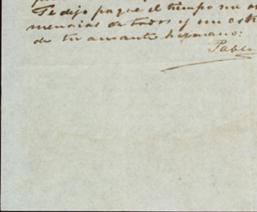 Te dejo pa que el tiempo me
memorias de todos y un
de tu amante hermano:
Pablo